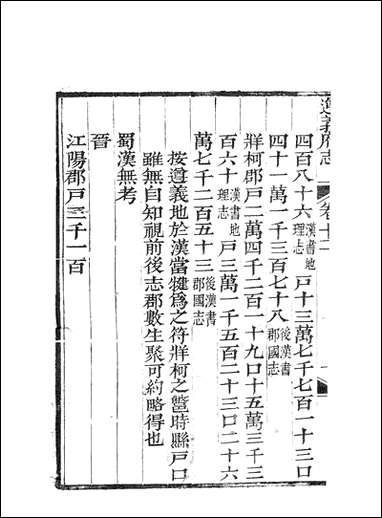 遵義府志 卷十二
四百八十六漢書地理志戶十三萬七千七百一十三口
四十一萬一千三百七十八後漢書郡國志
牂柯郡戶二萬四千二百一十九口十五萬三千三
百六十漢書地理志戶三萬一千五百二十三口二十六
萬七千二百五十三後漢書郡國志
按遵義地於漢當犍爲之符牂柯之鄨時縣戶口
雖無自知視前後志郡數生聚可約略得也
蜀漢無考
晉
江陽郡戶三千一百